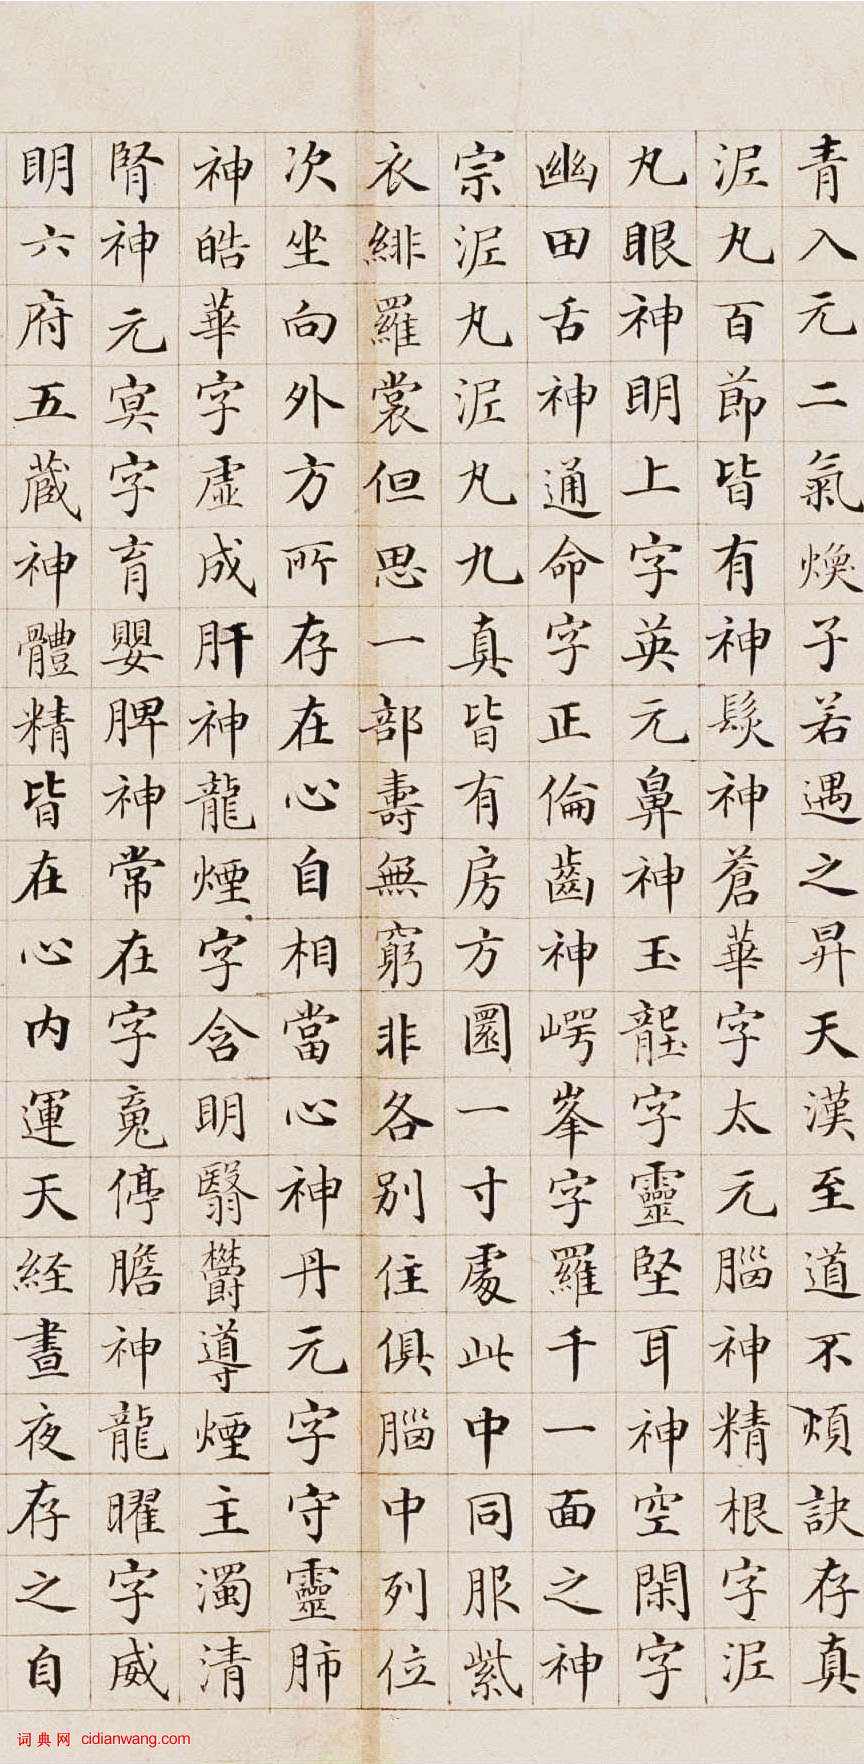 青入元二氣煥子若遇之昇天漢至道不煩訣存真
泥丸百節皆有神髮神蒼華字太元腦神精根字泥
丸眼神明上字英元鼻神玉壟字靈堅耳神空閑字
幽田舌神通命字正倫齒神崿峯字羅千一面之神
宗泥丸泥丸九真皆有房方圓一寸處此中同服紫
衣緋羅裳但思一部壽無窮非各別住俱腦中列位
次坐向外方所存在心自相當心神丹元字守靈肺
神皓華字虛成肝神龍煙字含明翳鬱導煙主濁清
腎神元冥字育嬰脾神常在字魂停膽神龍曜字威
明六府五藏神體精皆在心内運天経晝夜存之自
词典网 cidianwang.com